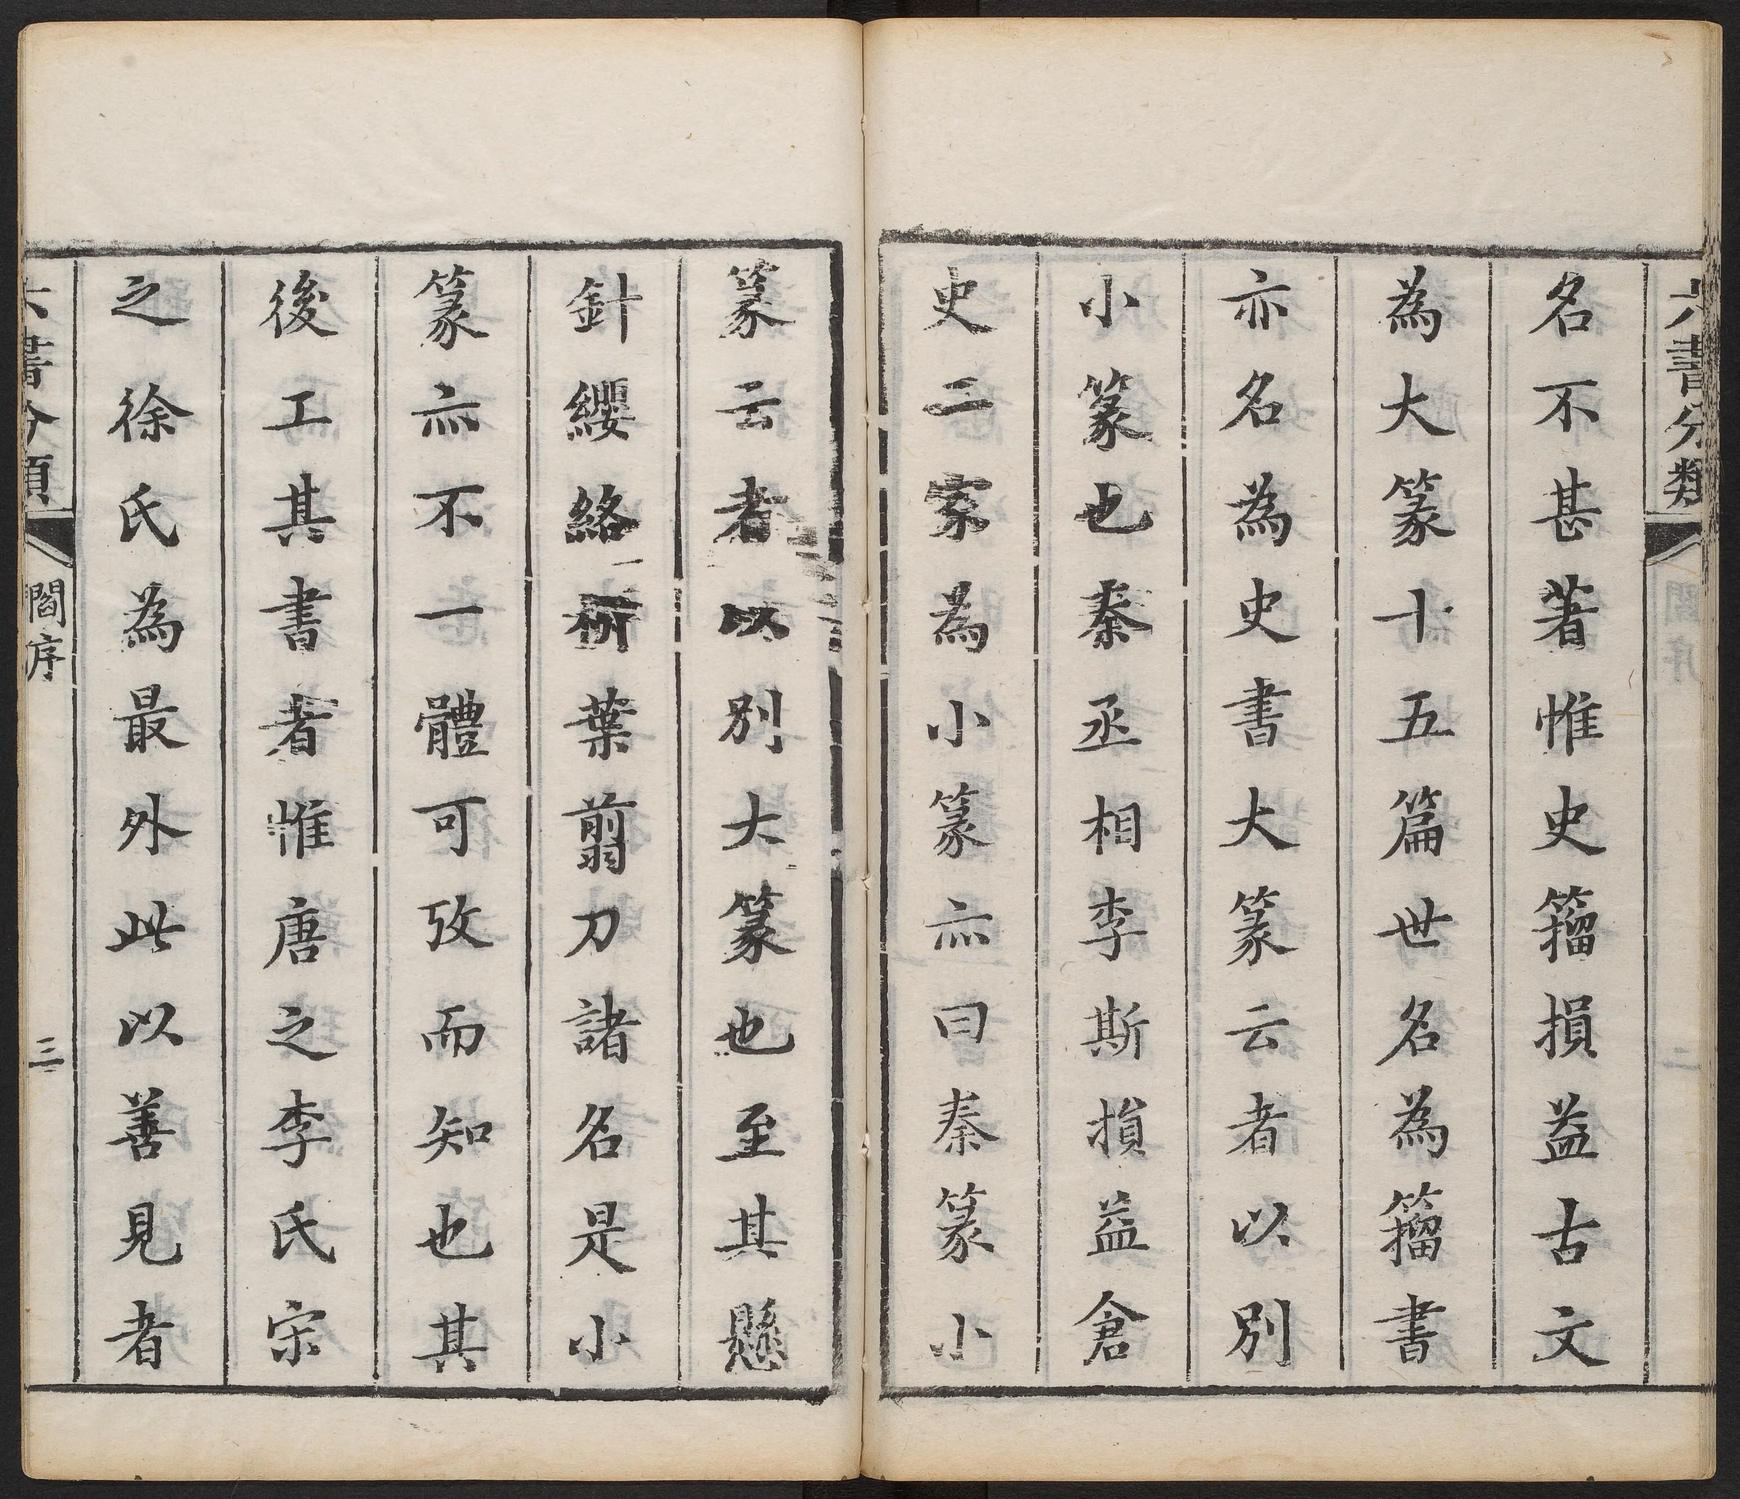 六書分類
名不甚著惟史籀損益古文
為大篆十五篇世名為籀書
亦名為史書大篆云者以別
小篆也秦丞相李斯損益倉
史二家為小篆亦曰秦篆小
篆云者以別大篆也至其懸
針纓絡柳葉翦刀諸名是小
篆亦不一體可攷而知也其
後工其書者惟唐之李氏宋
之徐氏為最外此以善見者
六書分類 閻序 三